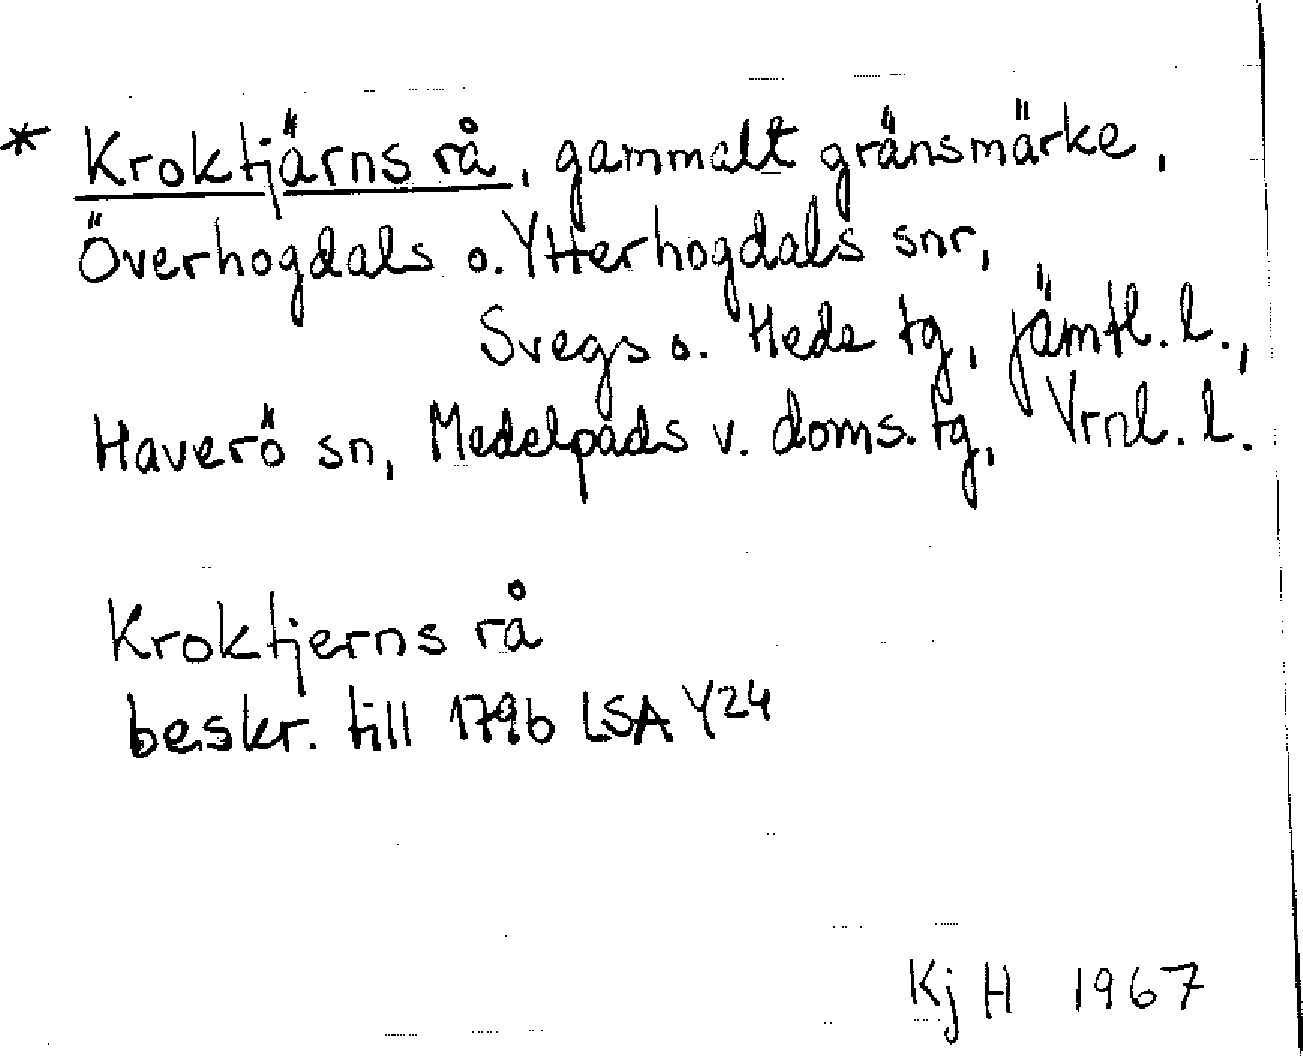 * Kroktjärns rå, gammalt gränsmärke,
Överhogdals o. Ytterhogdals snr,
Svegs o. Heds tg, Jämtl. l.,
Haverö sn, Medelpads v. doms. tg, Vrnl. l.
Kroktjerns rå
beskr. till 1796 LSA Y24
KjH 1967